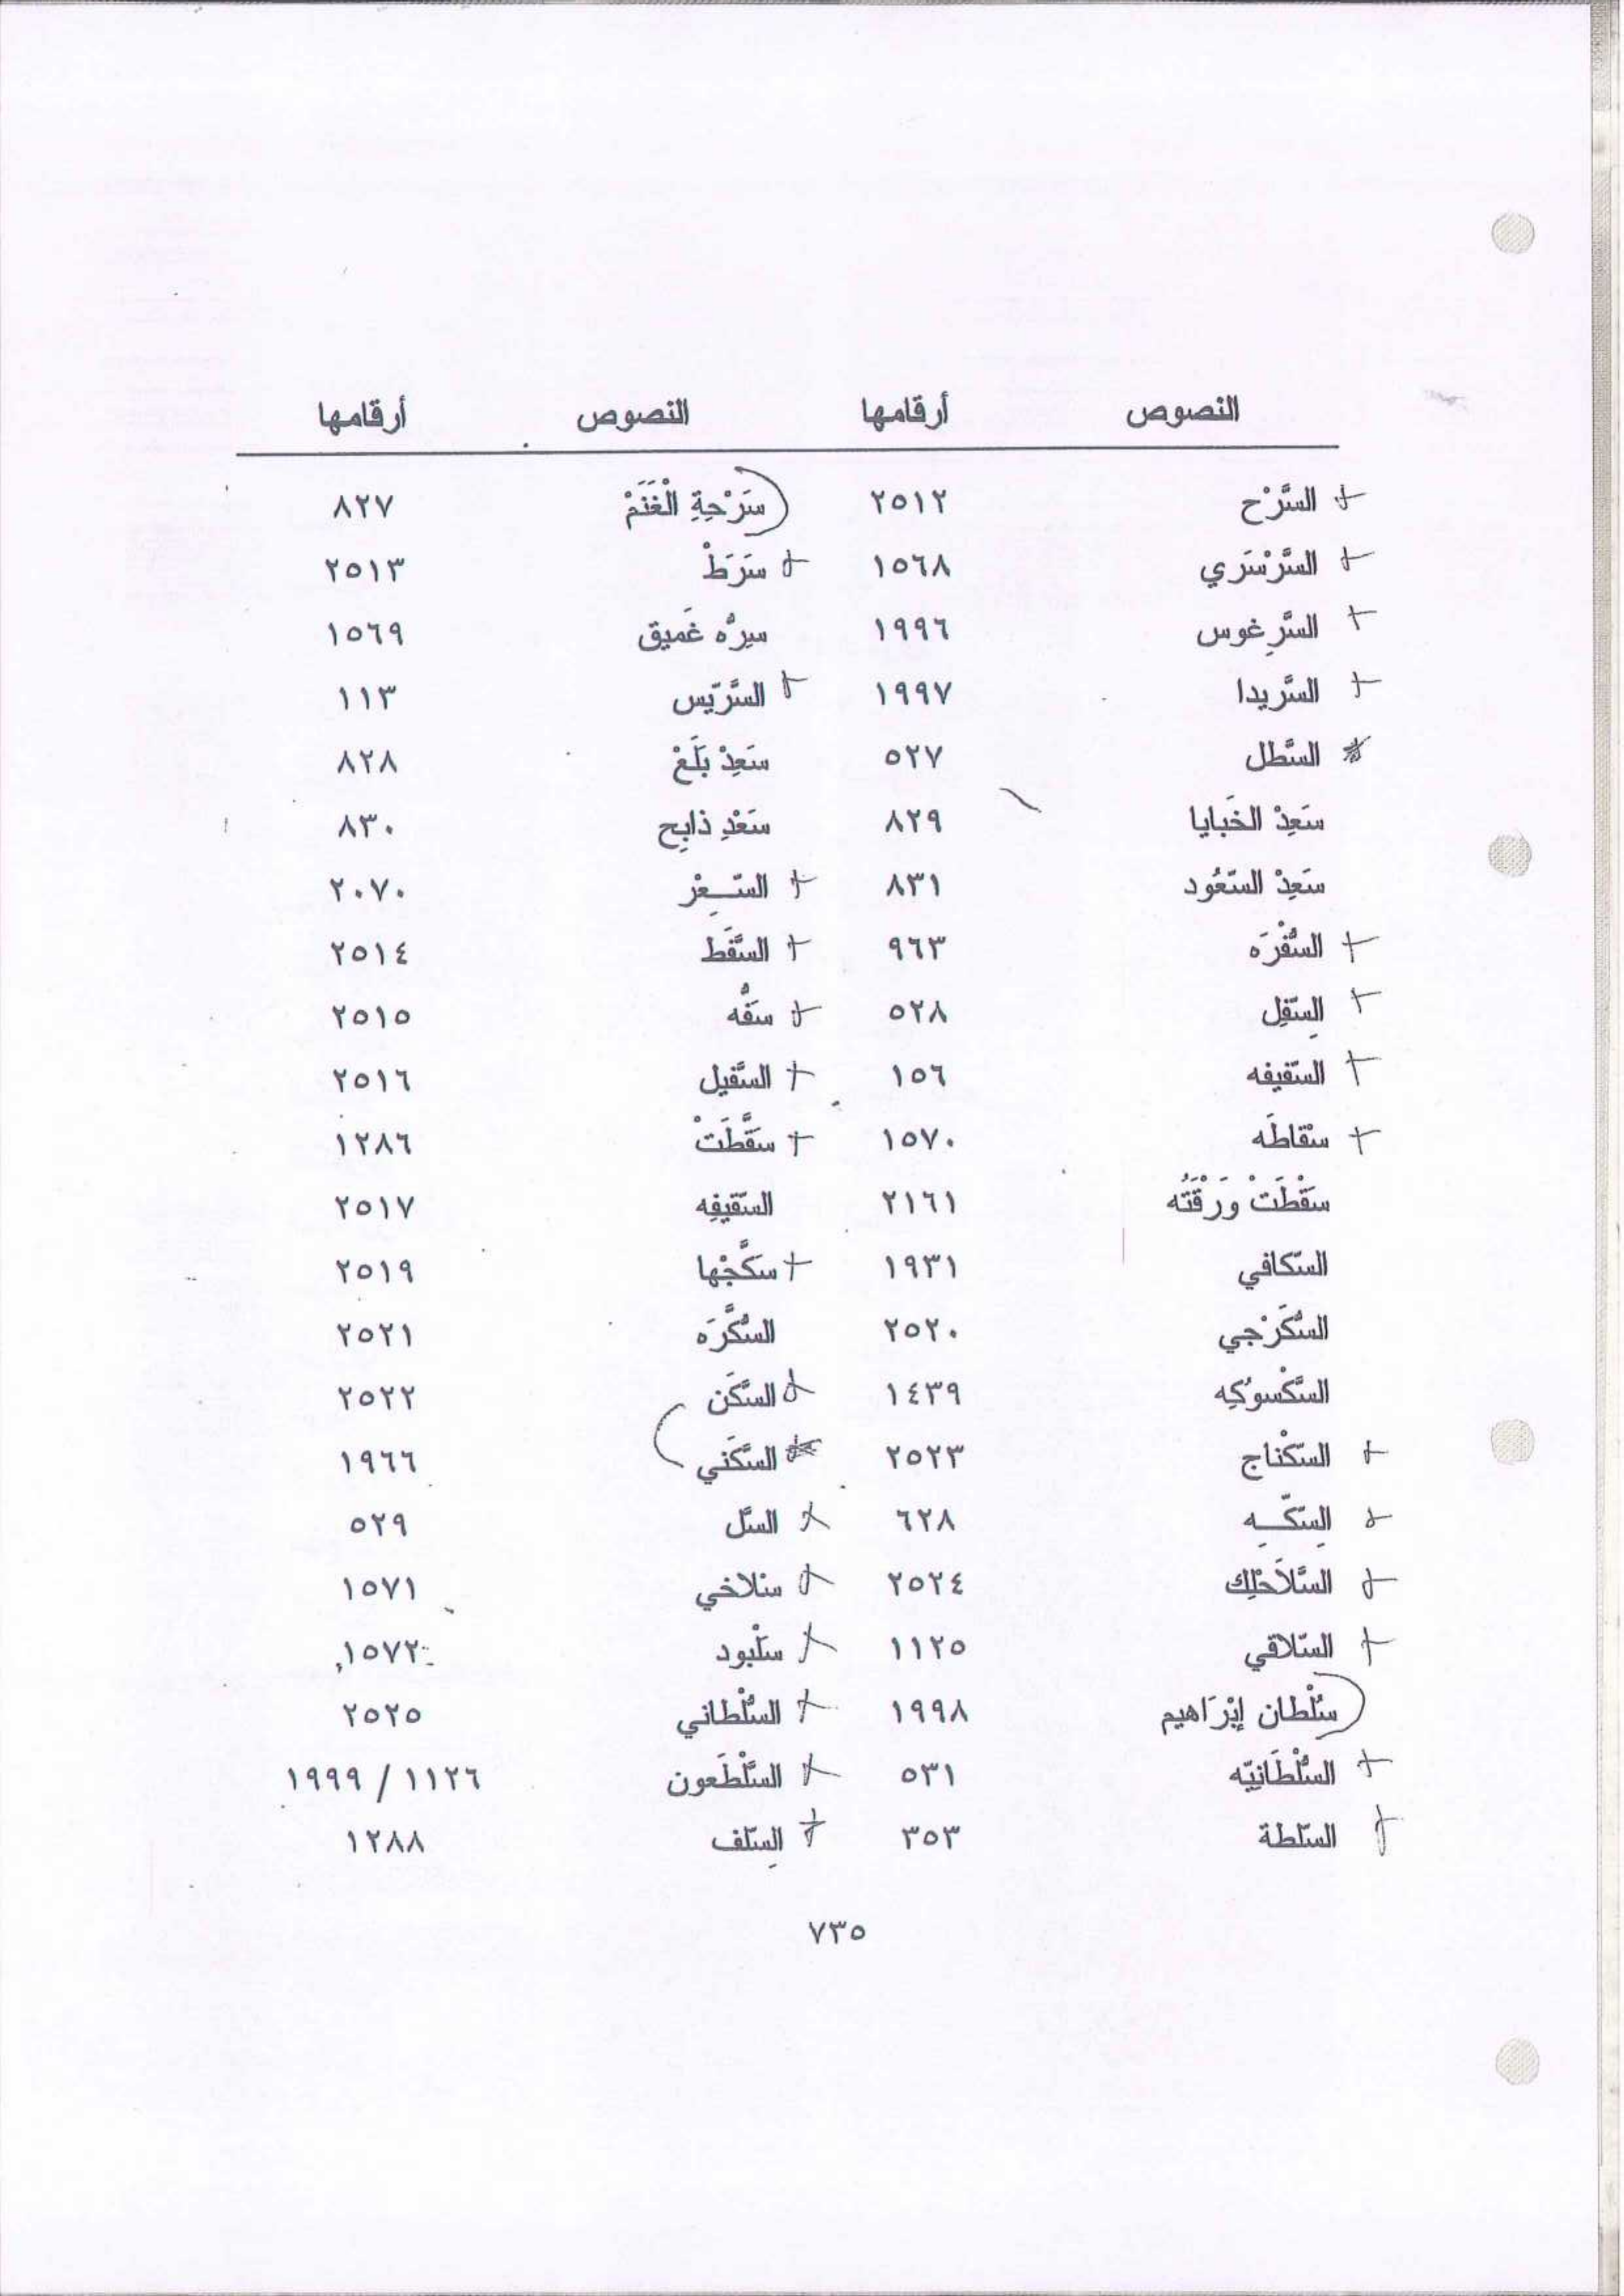 النصوص أرقامها النصوص أرقامها
+ السَّرْح ٢٥١٢ سَرْحِةِ الْغَنَمْ ٨٢٧
+ السَّرْسَري ١٥٦٨ + سَرَطْ ٢٥١٣
+ السَّرِغوس ١٩٩٦ سِرُّه غَميق ١٥٦٩
+ السَّريدا ١٩٩٧ + السَّرّيس ١١٣
* السَّطل ٥٢٧ سَعِدْ بَلَعْ ٨٢٨
سَعِدْ الخَبايا ٨٢٩ سَعْدِ ذابِح ٨٣٠
سَعِدْ السّعُود ٨٣١ + السّـِعْر ٢٠٧٠
+ السُّفْرَه ٩٦٣ + السَّقَط ٢٥١٤
+ السّقِل ٥٢٨ + سَقُّه ٢٥١٥
+ السّقيفه ١٥٦ + السَّقيل ٢٥١٦
+ سْقاطَه ١٥٧٠ + سَقَّطَتْ ١٢٨٦
سَقْطَتْ وَرْقْتُه ٢١٦١ السّقيفِه ٢٥١٧
السّكافي ١٩٣١ + سَكَّجْها ٢٥١٩
السُّكَرْجي ٢٥٢٠ السُّكَّرَه ٢٥٢١
السَّكْسوكِه ١٤٣٩ + السَّكَن ٢٥٢٢
+ السّكْناج ٢٥٢٣ * السَّكَني ١٩٦٦
+ السِّكّـِه ٦٢٨ + السَّل ٥٢٩
+ السَّلاَحْلِك ٢٥٢٤ + سْلاخي ١٥٧١
+ السّلاقي ١١٢٥ + سَلْبود ١٥٧٢
سُلْطان إبْرَاهيم ١٩٩٨ + السُّلْطاني ٢٥٢٥
+ السُّلْطَانِيّه ٥٣١ + السَّلْطَعون ١١٢٦ / ١٩٩٩
+ السّلطة ٣٥٣ + السِّلف ١٢٨٨
٧٣٥